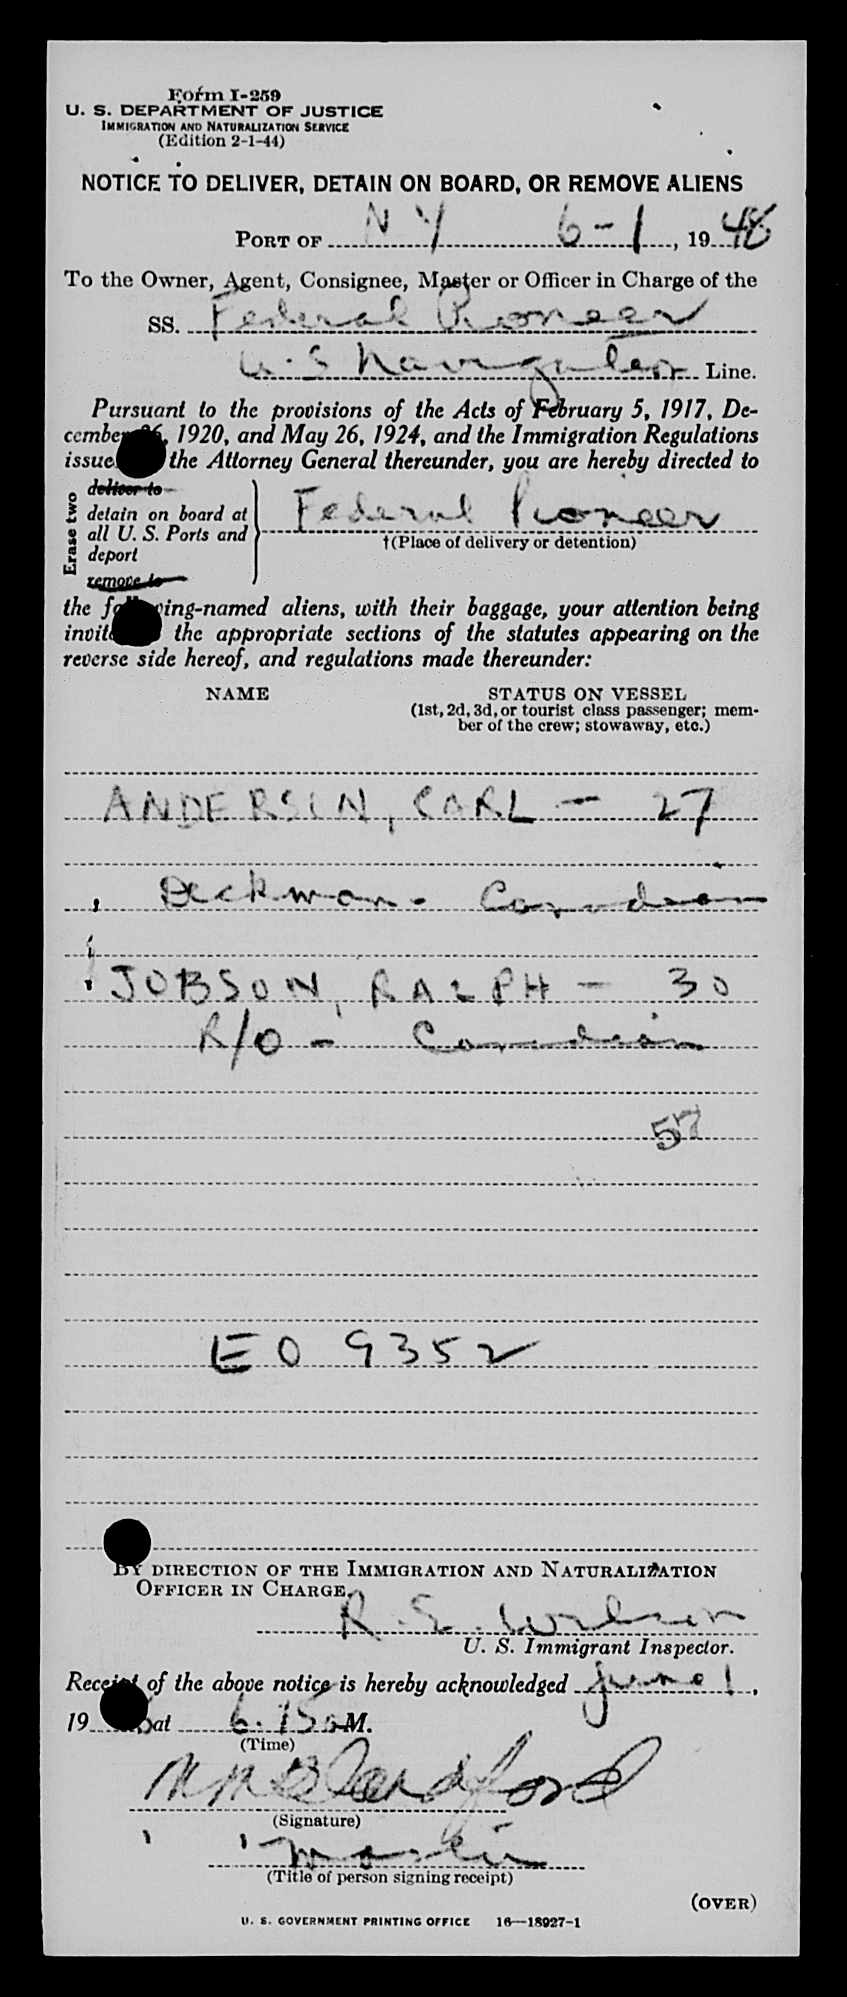 Form I-259
U. S. DEPARTMENT OF JUSTICE
IMMIGRATION AND NATURALIZATION SERVICE
(Edition 2-1-44)
NOTICE TO DELIVER, DETAIN ON BOARD, OR REMOVE ALIENS
PORT OF N Y 6-1, 1948
To the Owner, Agent, Consignee, Master or Officer in Charge of the
SS. Federal Pioneer
U.S Navigation Line.
Pursuant to the provisions of the Acts of February 5, 1917, De-
cember 26, 1920, and May 26, 1924, and the Immigration Regulations
issue the Attorney General thereunder, you are hereby directed to
Erase two
deliver to
detain on board at
all U. S. Ports and
deport
remove to
Federal Pioneer
†(Place of delivery or detention)
the following-named aliens, with their baggage, your attention being
invit the appropriate sections of the statutes appearing on the
reverse side hereof, and regulations made thereunder:
NAME STATUS ON VESSEL
(1st, 2d, 3d, or tourist class passenger; mem-
ber of the crew; stowaway, etc.)
ANDERSON, CARL - 27
Deckman - Canadian
JOBSON, RALPH - 30
R/O - Canadian
57
EO 9352
BY DIRECTION OF THE IMMIGRATION AND NATURALIZATION
OFFICER IN CHARGE.
R. E. Wilson
U. S. Immigrant Inspector.
Receipt of the above notice is hereby acknowledged June 1,
19 at 6.15 aM.
(Time)
Blandford
(Signature)
Master
(Title of person signing receipt)
(OVER)
U. S. GOVERNMENT PRINTING OFFICE 16—18927-1